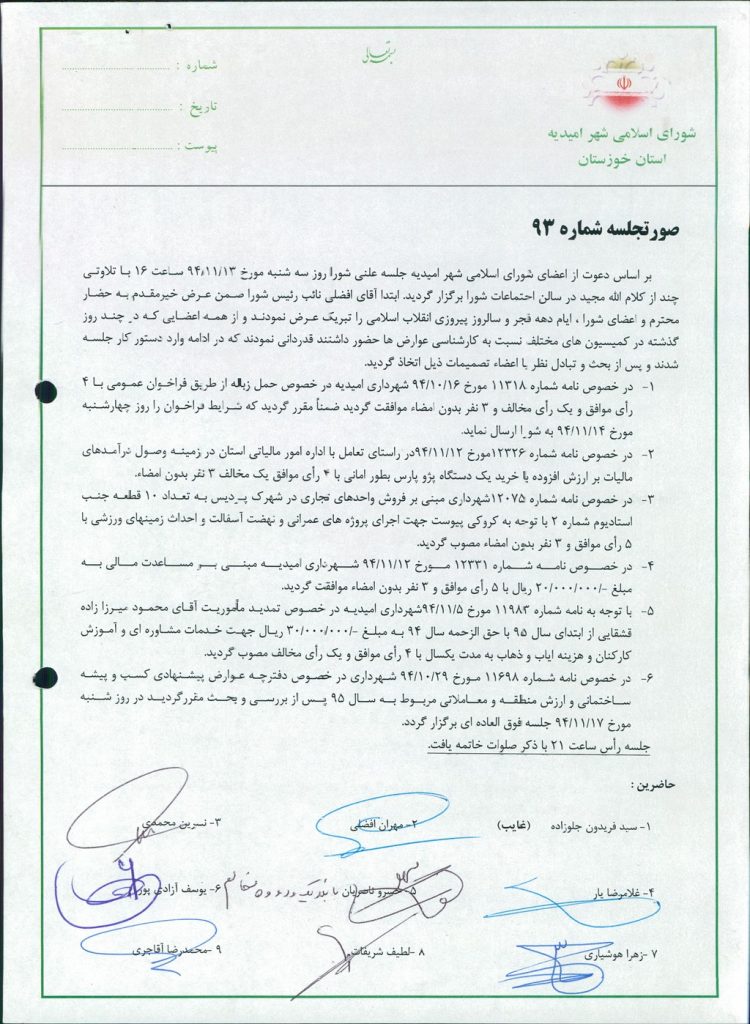 بسمه تعالی
شماره :
تاریخ :
پیوست :
شورای اسلامی شهر امیدیه
استان خوزستان
صورتجلسه شماره ۹۳
بر اساس دعوت از اعضای شورای اسلامی شهر امیدیه جلسه علنی شورا روز سه شنبه مورخ ۹۴/۱۱/۱۳ ساعت ۱۶ با تلاوتی
چند از کلام الله مجید در سالن اجتماعات شورا برگزار گردید. ابتدا آقای افضلی نائب رئیس شورا ضمن عرض خیرمقدم به حضار
محترم و اعضای شورا ، ایام دهه فجر و سالروز پیروزی انقلاب اسلامی را تبریک عرض نمودند و از همه اعضایی که در چند روز
گذشته در کمیسیون های مختلف نسبت به کارشناسی عوارض ها حضور داشتند قدردانی نمودند که در ادامه وارد دستور کار جلسه
شدند و پس از بحث و تبادل نظر با اعضاء تصمیمات ذیل اتخاذ گردید.
۱- در خصوص نامه شماره ۱۱۳۱۸ مورخ ۹۴/۱۰/۱۶ شهرداری امیدیه در خصوص حمل زباله از طریق فراخوان عمومی با ۴
رأی موافق و یک رأی مخالف و ۳ نفر بدون امضاء موافقت گردید ضمناً مقرر گردید که شرایط فراخوان را روز چهارشنبه
مورخ ۹۴/۱۱/۱۴ به شورا ارسال نماید.
۲- در خصوص نامه شماره ۱۲۳۲۶مورخ ۹۴/۱۱/۱۲در راستای تعامل با اداره امور مالیاتی استان در زمینه وصول درآمدهای
مالیات بر ارزش افزوده با خرید یک دستگاه پژو پارس بطور امانی با ۴ رأی موافق یک مخالف ۳ نفر بدون امضاء.
۳- در خصوص نامه شماره ۱۲۰۷۵شهرداری مبنی بر فروش واحدهای تجاری در شهرک پردیس به تعداد ۱۰ قطعه جنب
استادیوم شماره ۲ با توجه به کروکی پیوست جهت اجرای پروژه های عمرانی و نهضت آسفالت و احداث زمینهای ورزشی با
۵ رأی موافق و ۳ نفر بدون امضاء مصوب گردید.
۴- در خصوص نامه شماره ۱۲۳۳۱ مورخ ۹۴/۱۱/۱۲ شهرداری امیدیه مبنی بر مساعدت مالی به
مبلغ -/۲۰/۰۰۰/۰۰۰ ریال با ۵ رأی موافق و ۳ نفر بدون امضاء موافقت گردید.
۵- با توجه به نامه شماره ۱۱۹۸۳ مورخ ۹۴/۱۱/۵شهرداری امیدیه در خصوص تمدید مأموریت آقای محمود میرزا زاده
قشقایی از ابتدای سال ۹۵ با حق الزحمه سال ۹۴ به مبلغ -/۳۰/۰۰۰/۰۰۰ ریال جهت خدمات مشاوره ای و آموزش
کارکنان و هزینه ایاب و ذهاب به مدت یکسال با ۴ رأی موافق و یک رأی مخالف مصوب گردید.
۶- در خصوص نامه شماره ۱۱۶۹۸ مورخ ۹۴/۱۰/۲۹ شهرداری در خصوص دفترچه عوارض پیشنهادی کسب و پیشه
ساختمانی و ارزش منطقه و معاملاتی مربوط به سال ۹۵ پس از بررسی و بحث مقررگردید در روز شنبه
مورخ ۹۴/۱۱/۱۷ جلسه فوق العاده ای برگزار گردد.
جلسه رأس ساعت ۲۱ با ذکر صلوات خاتمه یافت.
حاضرین :
۱- سید فریدون جلوزاده (غایب) ۲- مهران افضلی ۳- نسرین محمدی
۴- غلامرضا یار ۵- خسرو ناصریان ۶- یوسف آزادی پور
۷ -زهرا هوشیاری ۸ -لطیف شریفات ۹ -محمدرضا آقاجری